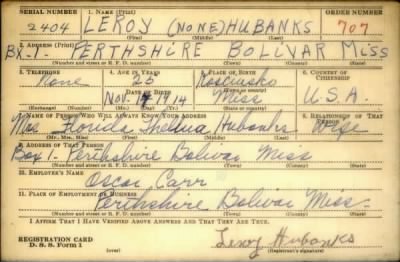 SERIAL NUMBER 1. NAME (Print) ORDER NUMBER
2404 LEROY (NONE) HUBANKS 707
(First) (Middle) (Last)
2. ADDRESS (Print)
BX-1- PERTHSHIRE BOLIVAR MISS
(Number and street or R. F. D. number) (Town) (County) (State)
3. TELEPHONE 4. AGE IN YEARS 5. PLACE OF BIRTH 6. COUNTRY OF CITIZENSHIP
None 26 Kosciusko
DATE OF BIRTH
Nov. 14 1914 Miss U.S.A.
(Exchange) (Number) (Mo.) (Day) (Yr.) (State or country)
7. NAME OF PERSON WHO WILL ALWAYS KNOW YOUR ADDRESS 8. RELATIONSHIP OF THAT PERSON
Mrs. Florida Thelma Hubanks Wife
(Mr., Mrs., Miss) (First) (Middle) (Last)
9. ADDRESS OF THAT PERSON
Box 1- Perthshire Bolivar Miss
(Number and street or R. F. D. number) (Town) (County) (State)
10. EMPLOYER'S NAME
Oscar Carr
11. PLACE OF EMPLOYMENT OR BUSINESS
Perthshire Bolivar Miss.
(Number and street or R. F. D. number) (Town) (County) (State)
I AFFIRM THAT I HAVE VERIFIED ABOVE ANSWERS AND THAT THEY ARE TRUE.
REGISTRATION CARD Leroy Hubanks
D. S. S. Form 1 (over) (Registrant's signature)